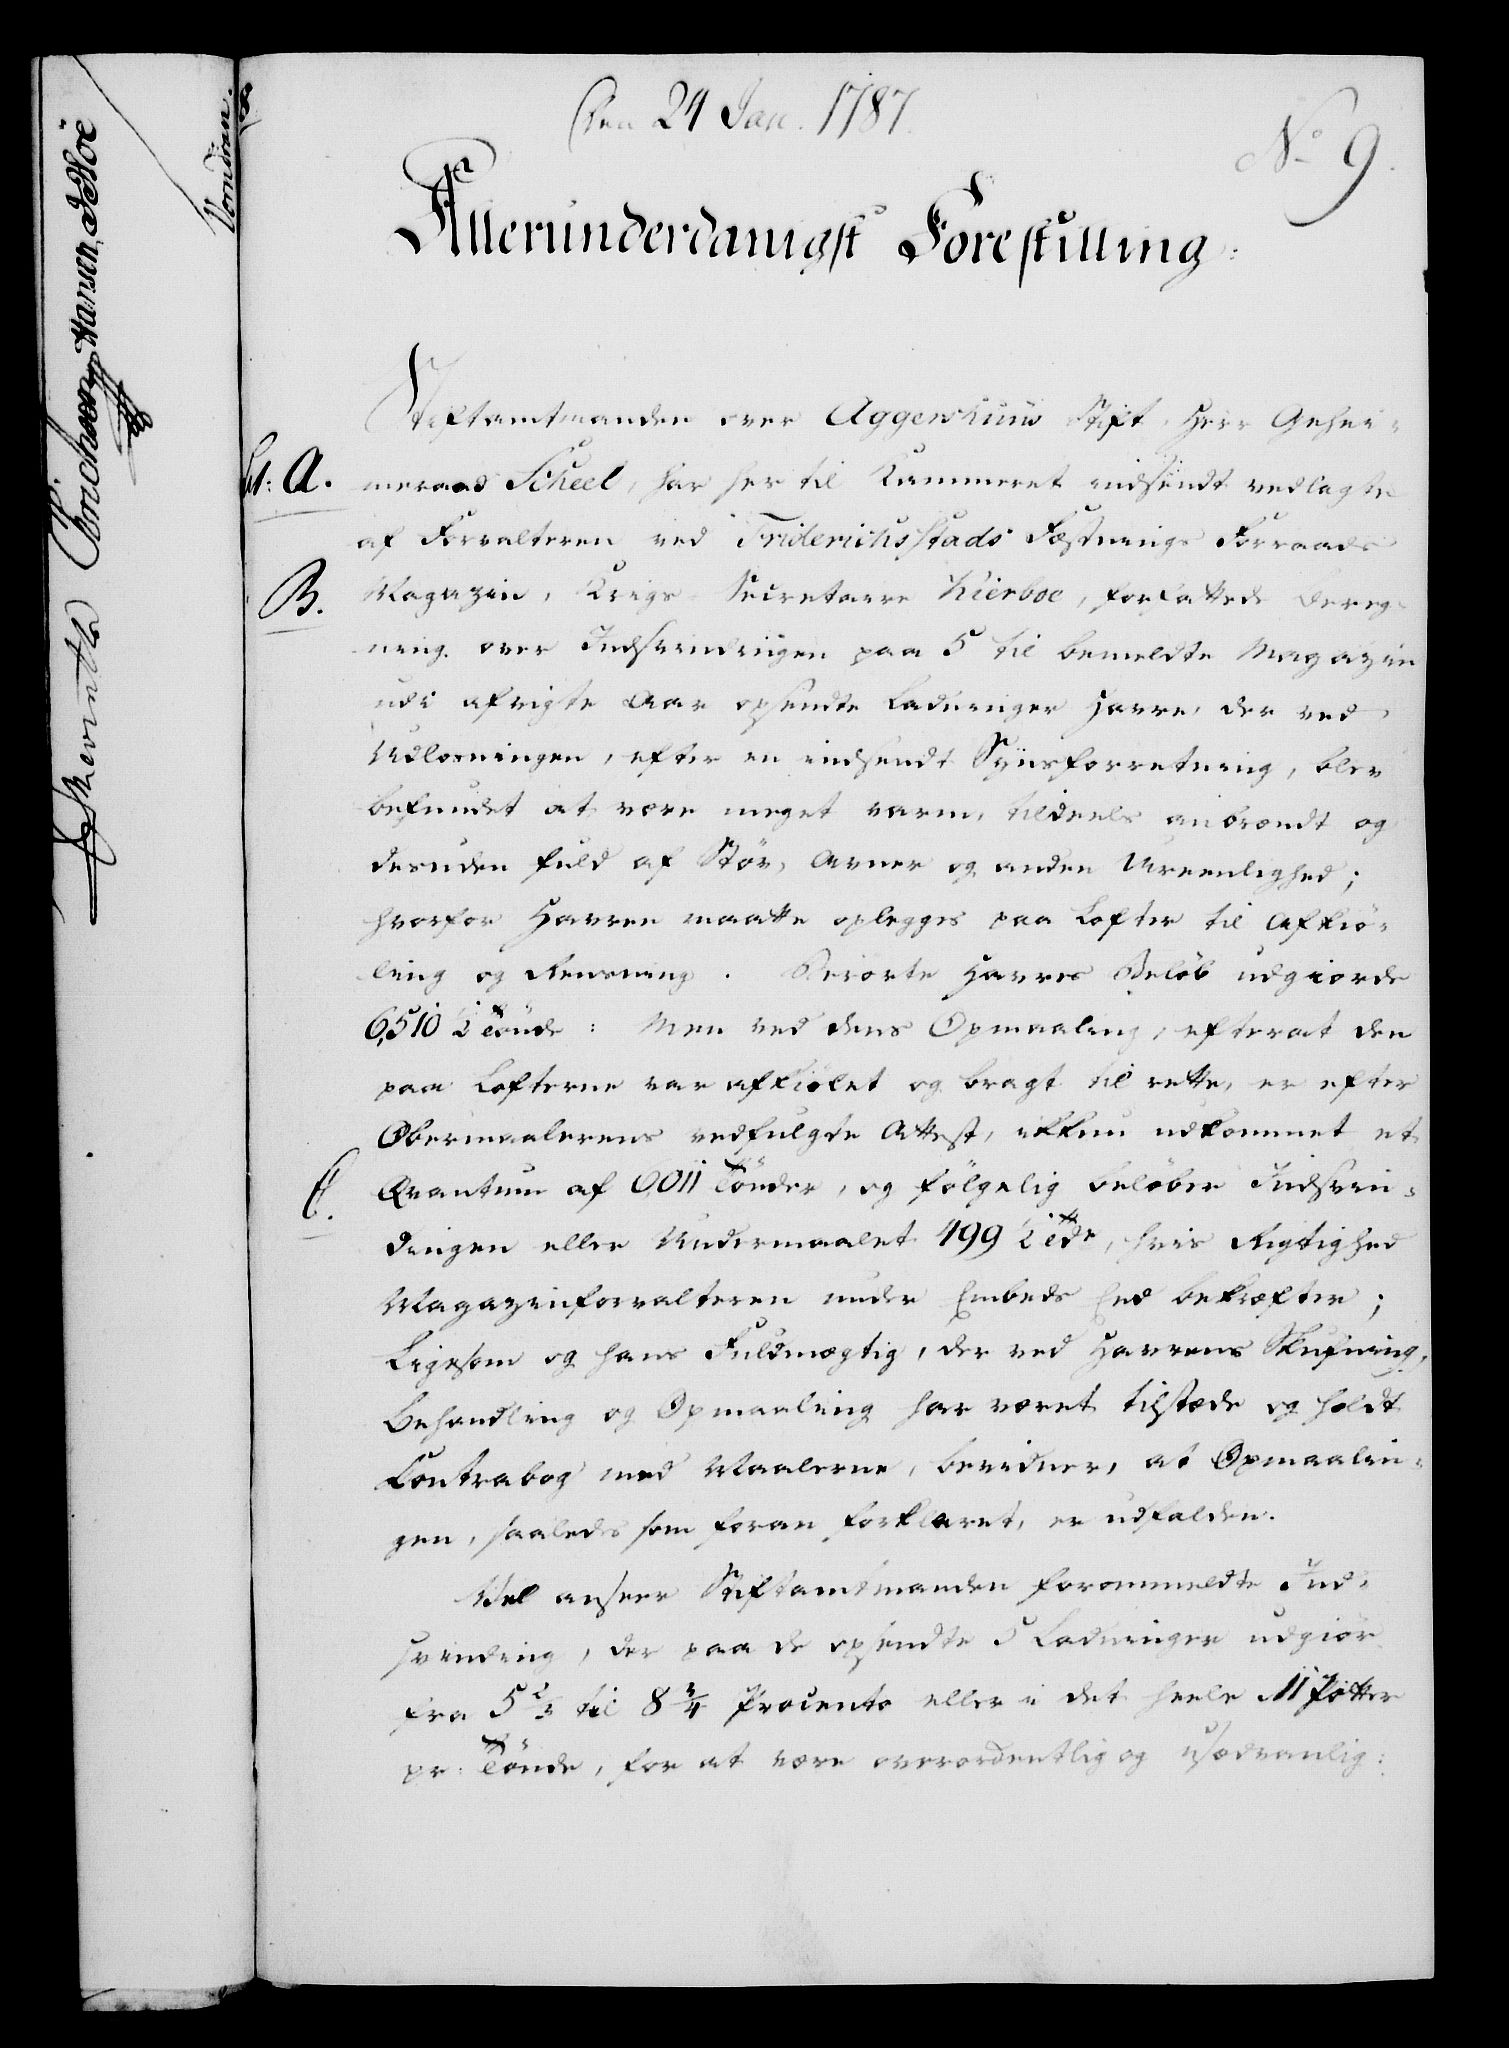 Den 24 Jan. 1787.
No 9.
Allerunderdanigst Forestilling.
Stiftamtmanden over Aggershuus Stift, Herr Gehei-
Lit: A. meraad Scheel, har her til Kammeret indsendt vedlagte
af Forvalteren ved Friderichsstads Fæstnings Forraads
B. Magazin, Krigs-Secretaire Kierboe, forfattede Bereg-
ning over Indsvindingen paa 5 til bemeldte Magazin
udi afvigte Aar opsendte Ladninger Havre, der ved
Udlosningen, efter en indsendt Synsforretning, blev
befundet at være meget varm, tildeels anbrændt og
desuden fuld af Støv, Avner og anden Ureenlighed;
hvorfor Havren maatte oplegges paa Lofter til Afkiö-
ling og Rensning. Berörte Havres Beløb udgiorde
6,510 1/2 Tönde: Men ved dens Opmaaling, efterat den
paa Lofterne var afkiölet og bragt til rette, er efter
Obermaalerens vedfulgte Attest, ikkun udkommet et
C. Qvantum af 6,011 Tönder, og fölgelig belöber Indsvin-
dingen eller Undermaalet 499 1/2 Tdr, hvis Rigtighed
Magazinforvalteren under Embeds Eed bekræfter;
Ligesom og hans Fuldmægtig, der ved Havrens Skufning,
Behandling og Opmaaling har været tilstæde og holdt
Contrabog med Maalerne, bevidner, at Opmaalin-
gen, saaledes som foran forklaret, er udfalden.
Vel anseer Stiftamtmanden forommeldte Ind-
svinding, der paa de opsendte 5 Ladninger udgiör
fra 5 2/3 til 8 3/4 Procento eller i det heele 11 Potter
pr: Tönde, for at være overordentlig og usædvanlig: